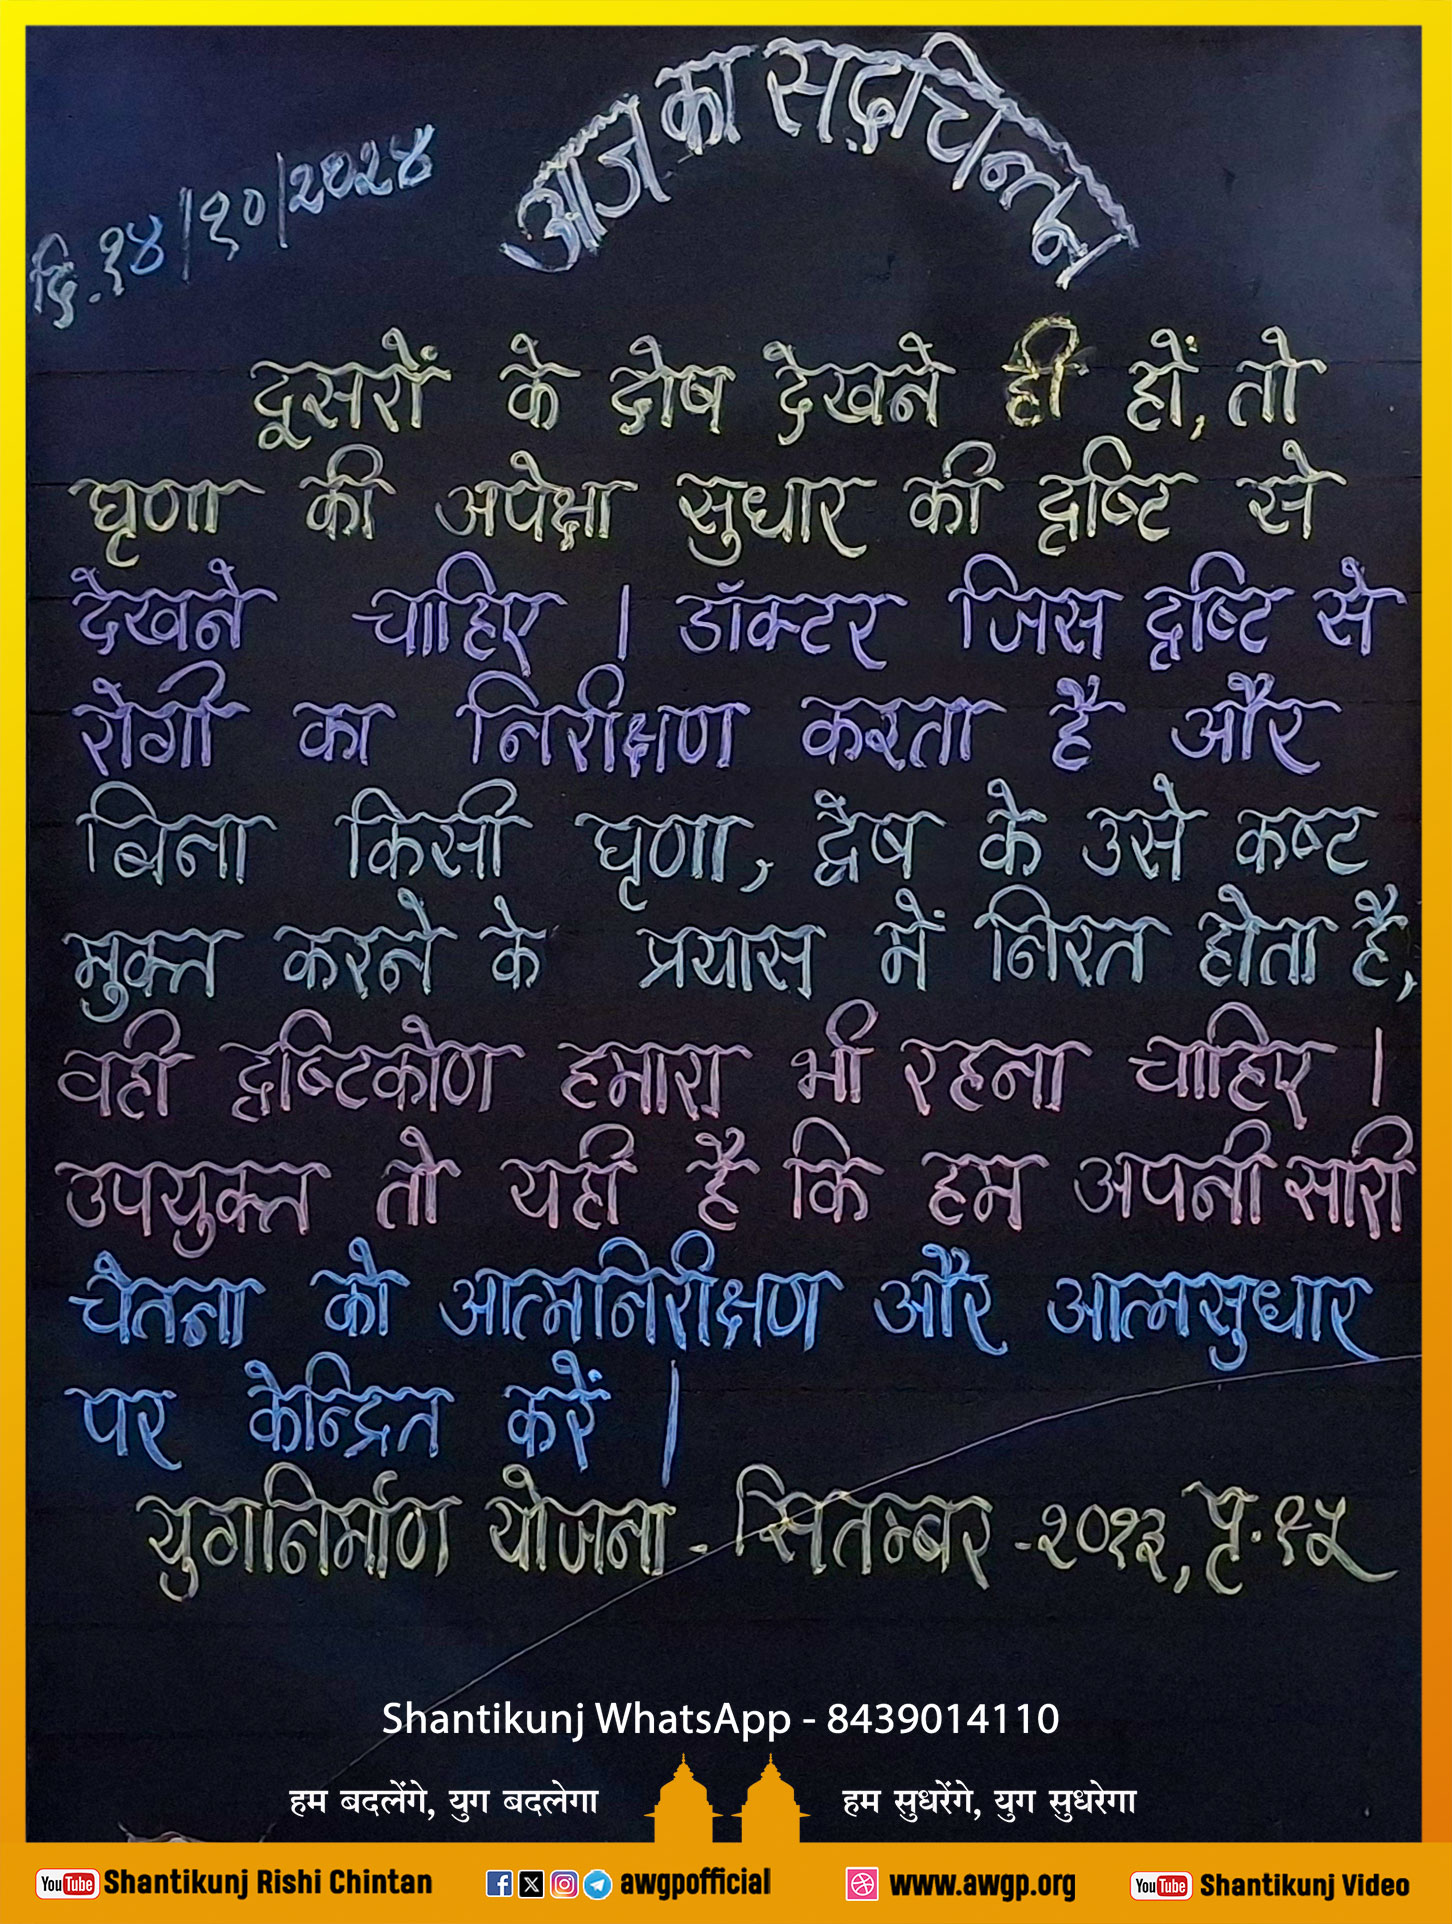 आज का सद्चिन्तन
दि. १४/१०/२०२४
दूसरों के दोष देखने ही हों, तो
घृणा की अपेक्षा सुधार की दृष्टि से
देखने चाहिए । डॉक्टर जिस दृष्टि से
रोगी का निरीक्षण करता है और
बिना किसी घृणा, द्वेष के उसे कष्ट
मुक्त करने के प्रयास में निरत होता है,
वही दृष्टिकोण हमारा भी रहना चाहिए ।
उपयुक्त तो यही है कि हम अपनी सारी
चेतना को आत्मनिरीक्षण और आत्मसुधार
पर केन्द्रित करें ।
युगनिर्माण योजना - सितम्बर - २०१३, पृ. १५
Shantikunj WhatsApp - 8439014110
हम बदलेंगे, युग बदलेगा हम सुधरेंगे, युग सुधरेगा
YouTube Shantikunj Rishi Chintan awgpofficial www.awgp.org YouTube Shantikunj Video